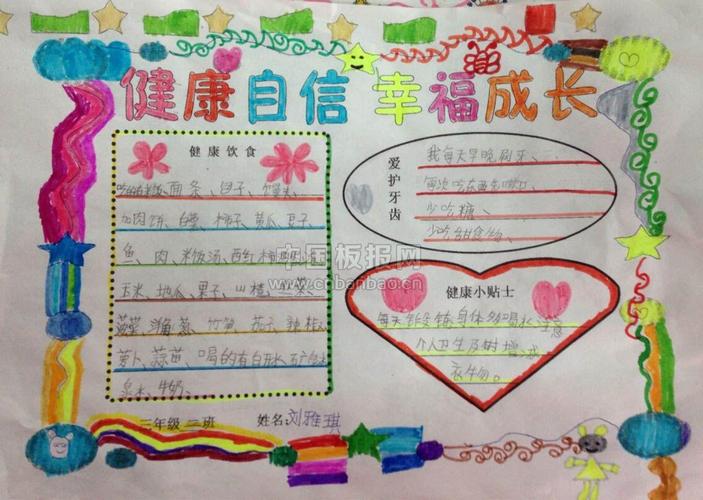 健康自信 幸福成长
健康饮食
面条、包子、馒头、
加肉饼、白菜、柿子、黄瓜、豆子
鱼、肉、米饭汤、西红柿
玉米、地瓜、果子、山楂、
菠菜、葱、竹笋、茄子、辣椒
萝卜、蒜苗、喝的有白开水
泉水、牛奶。
三年级 二班 姓名:刘雅琪
爱护牙齿
我每天早晚刷牙、
每次吃东西先漱口
少吃糖、
少吃甜食物、
健康小贴士
每天锻炼身体多喝水注意
个人卫生及时增减
衣物。
中国板报网
www.cnbanbao.cn